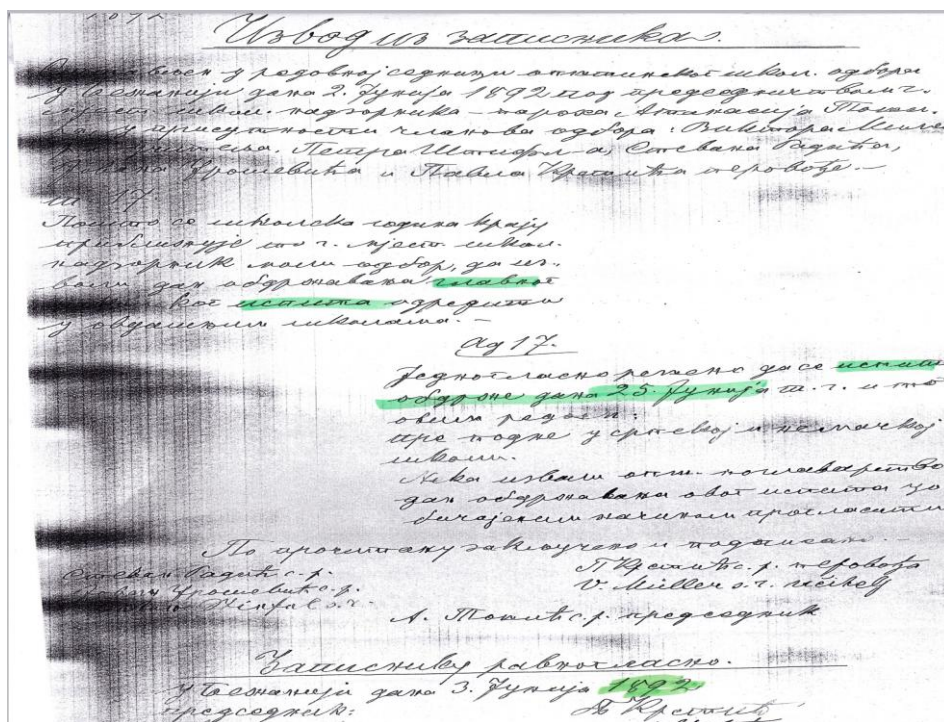 Извод из записника.
у редовној седници општинског школ. одбора
у Бежанији дана 2. Јунија 1892 под председничтвом г.
школ. надзорника пароха Атанасија
присутности чланова одбора: Виктора
Петра Стевана Радића,
Урошевића и Павла Крстића перовође.
17.
Пошто се школска година крају
приближује то г. мјест. школ.
надзорник моли одбор, да из-
воли дан обдржавања главног
испита одредити
у овдашњим школама. —
Ад 17.
Једногласно решено да се испит
обдрже дана 25. Јунија т. г. и то
овим редом:
пре подне у српској и немачкој
школи.
Нека изволи опш. поглаварство
дан обдржавања овог испита уо-
бичајеним начином прогласити
По прочитању закључено и подписано. —
Стеван Радић с. р.
Урошевић с. р.
П Крстић с. р. перовођа
V. Müller
А. с. р. председник
Записнику равногласно.
у Бежанији дана 3. Јунија 1892
председник:
П Крстић